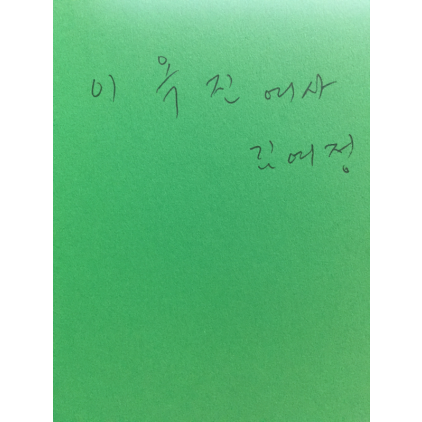 이 옥 진 여사
김여정